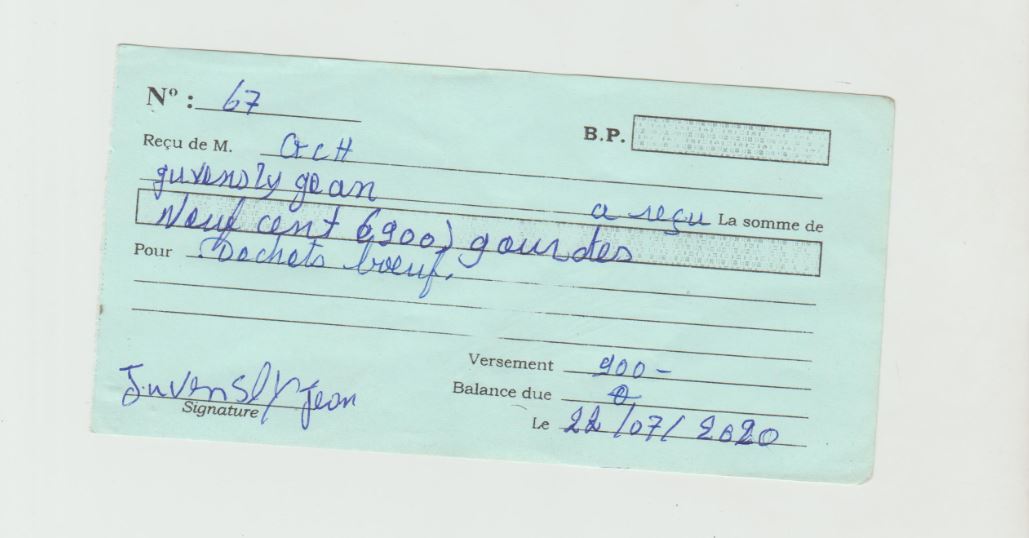 Nº : 67
B.P.
Reçu de M. GCH
Juvensly Jean
a reçu La somme de
Neuf cent (900) gourdes
Pour Dochets boeuf.
Versement 900 -
Balance due 0
Juvensly Jean
Signature
Le 22/07/2020